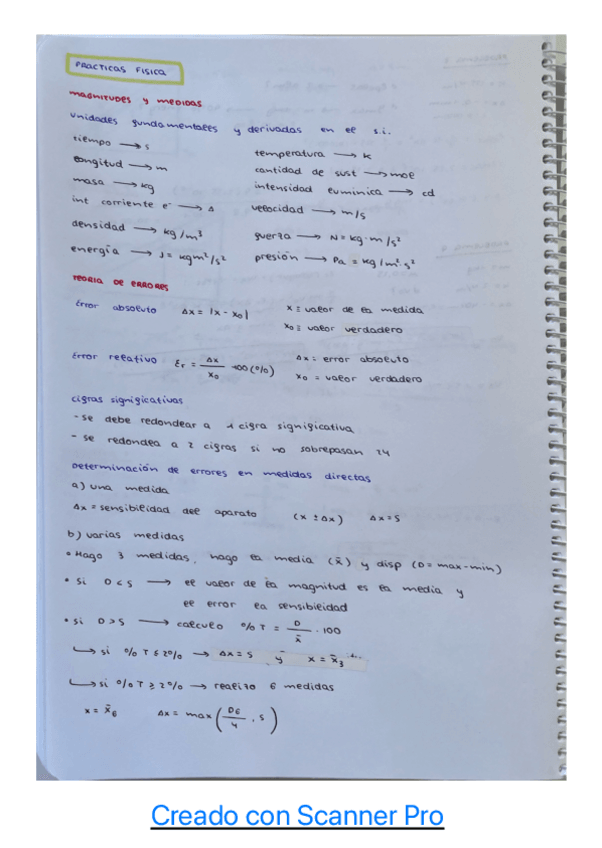 PRACTICAS FISICA
magnitudes y medidas
unidades fundamentales y derivadas en el s.i.
tiempo → s
temperatura → K
longitud → m
cantidad de sust → mol
masa → kg
intensidad luminica → cd
int corriente e⁻ → A
velocidad → m/s
densidad → kg/m³
fuerza → N = kg·m/s²
energía → J = kgm²/s²
presión → Pa = kg/m·s²
TEORIA DE ERRORES
Error absoluto Δx = |x - x₀| x ≡ valor de la medida
x₀ ≡ valor verdadero
Error relativo Er = Δx/x₀ ·100 (%) Δx = error absoluto
x₀ = valor verdadero
cifras significativas
- se debe redondear a 1 cifra significativa
- se redondea a 2 cifras si no sobrepasan 24
Determinación de errores en medidas directas
a) una medida
Δx = sensibilidad del aparato (x ± Δx) Δx = S
b) varias medidas
• Hago 3 medidas, hago la media (x̄) y disp (D = max - min)
• si D < S → el valor de la magnitud es la media y
el error la sensibilidad
• si D > S → calculo % T = D/x̄ · 100
↳ si % T ≤ 2% → Δx = S y x = x̄₃
↳ si % T ≥ 2% → realizo 6 medidas
x = x̄₆ Δx = max (D₆/4, S)
Creado con Scanner Pro